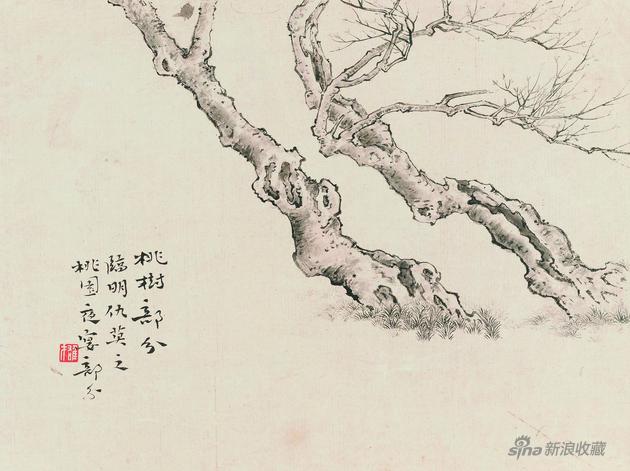 桃樹部分
臨明仇英之
桃園夜宴部分
sina新浪收藏